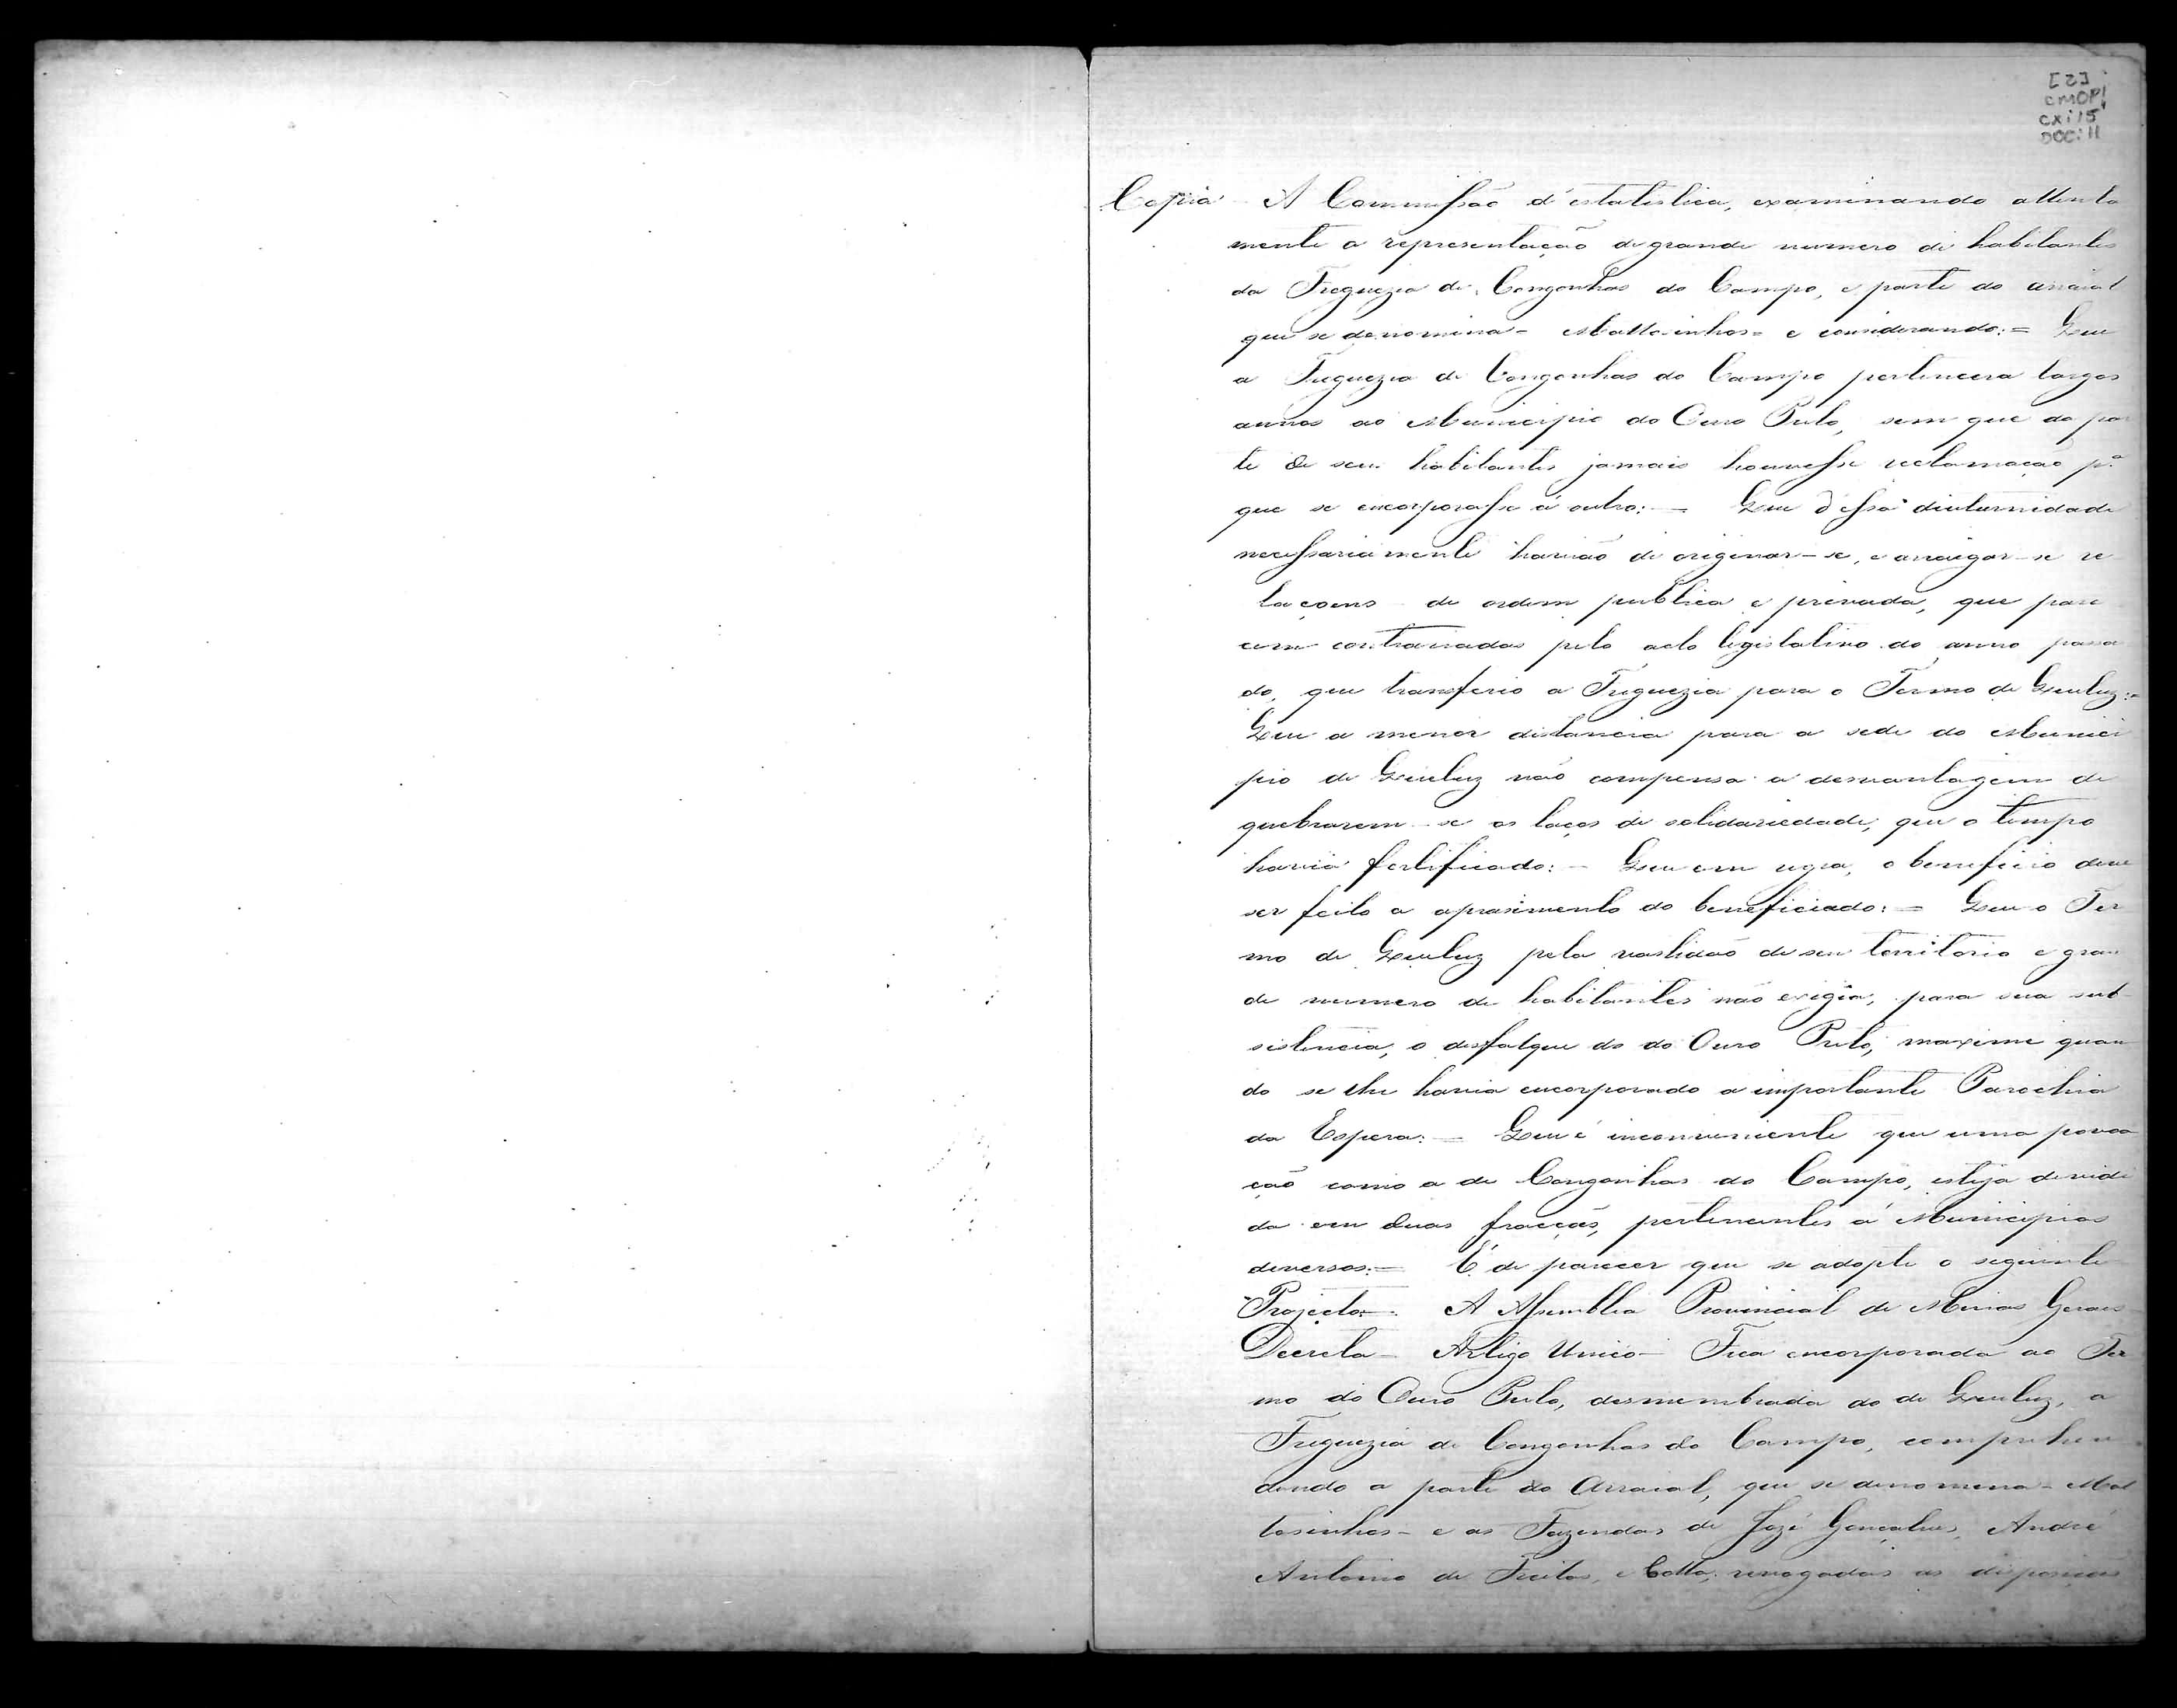 [2]
CMOP
CX: 15
DOC: 11
Copia A Commissão d'estatistica, examinando attenta
mente a representação de grande numero de habitantes
da Freguezia de Congonhas do Campo, e parte do arraial
que se denomina - Mattosinhos = e considerando: = Que
a Freguezia de Congonhas do Campo pertencera largos
annos ao Municipio do Ouro Preto, sem que da par
te de seus habitantes jamais houvesse reclamação p.ª
que se encorporasse á outro: = Que d'essa diuturnidade
necessariamente havião de originar-se, e arraigar-se re
laçoens de ordem publica e privada, que pare
cem contrariadas pelo acto legislativo do anno passa
do, que transferio a Freguezia para o Termo de Queluz: =
Que a menor distancia para a sede do Munici
pio de Queluz não compensa a desvantagem de
quebrarem-se os laços de solidariedade, que o tempo
havia fortificado: - Que em regra, o beneficio deve
ser feito a aprasimento do beneficiado: = Que o Ter
mo de Queluz pela vastidão de seu territorio e gran
de numero de habitantes não exigia, para sua sub-
sistencia, o desfalque do do Ouro Preto, maxime quan
do se lhe havia encorporado a importante Parochia
da Espera: = Que é inconveniente que uma povoa
ção como a de Congonhas do Campo, esteja devidi
da em duas fracçoẽs, pertencentes á Municipios
diversos: = É de parecer que se adopte o seguinte
Projecto: A Assemblea Provincial de Minas Geraes
Decreta - Artigo Unico - Fica encorporada ao Ter
mo do Ouro Preto, desmembrada do de Queluz, a
Freguezia de Congonhas do Campo, comprehen
dendo a parte do Arraial, que se denomena - Mat
tosinhos - e as Fazendas de José Gonçalves, André
Antonio de Freitas, e Motta; revogadas as disposiçoẽs